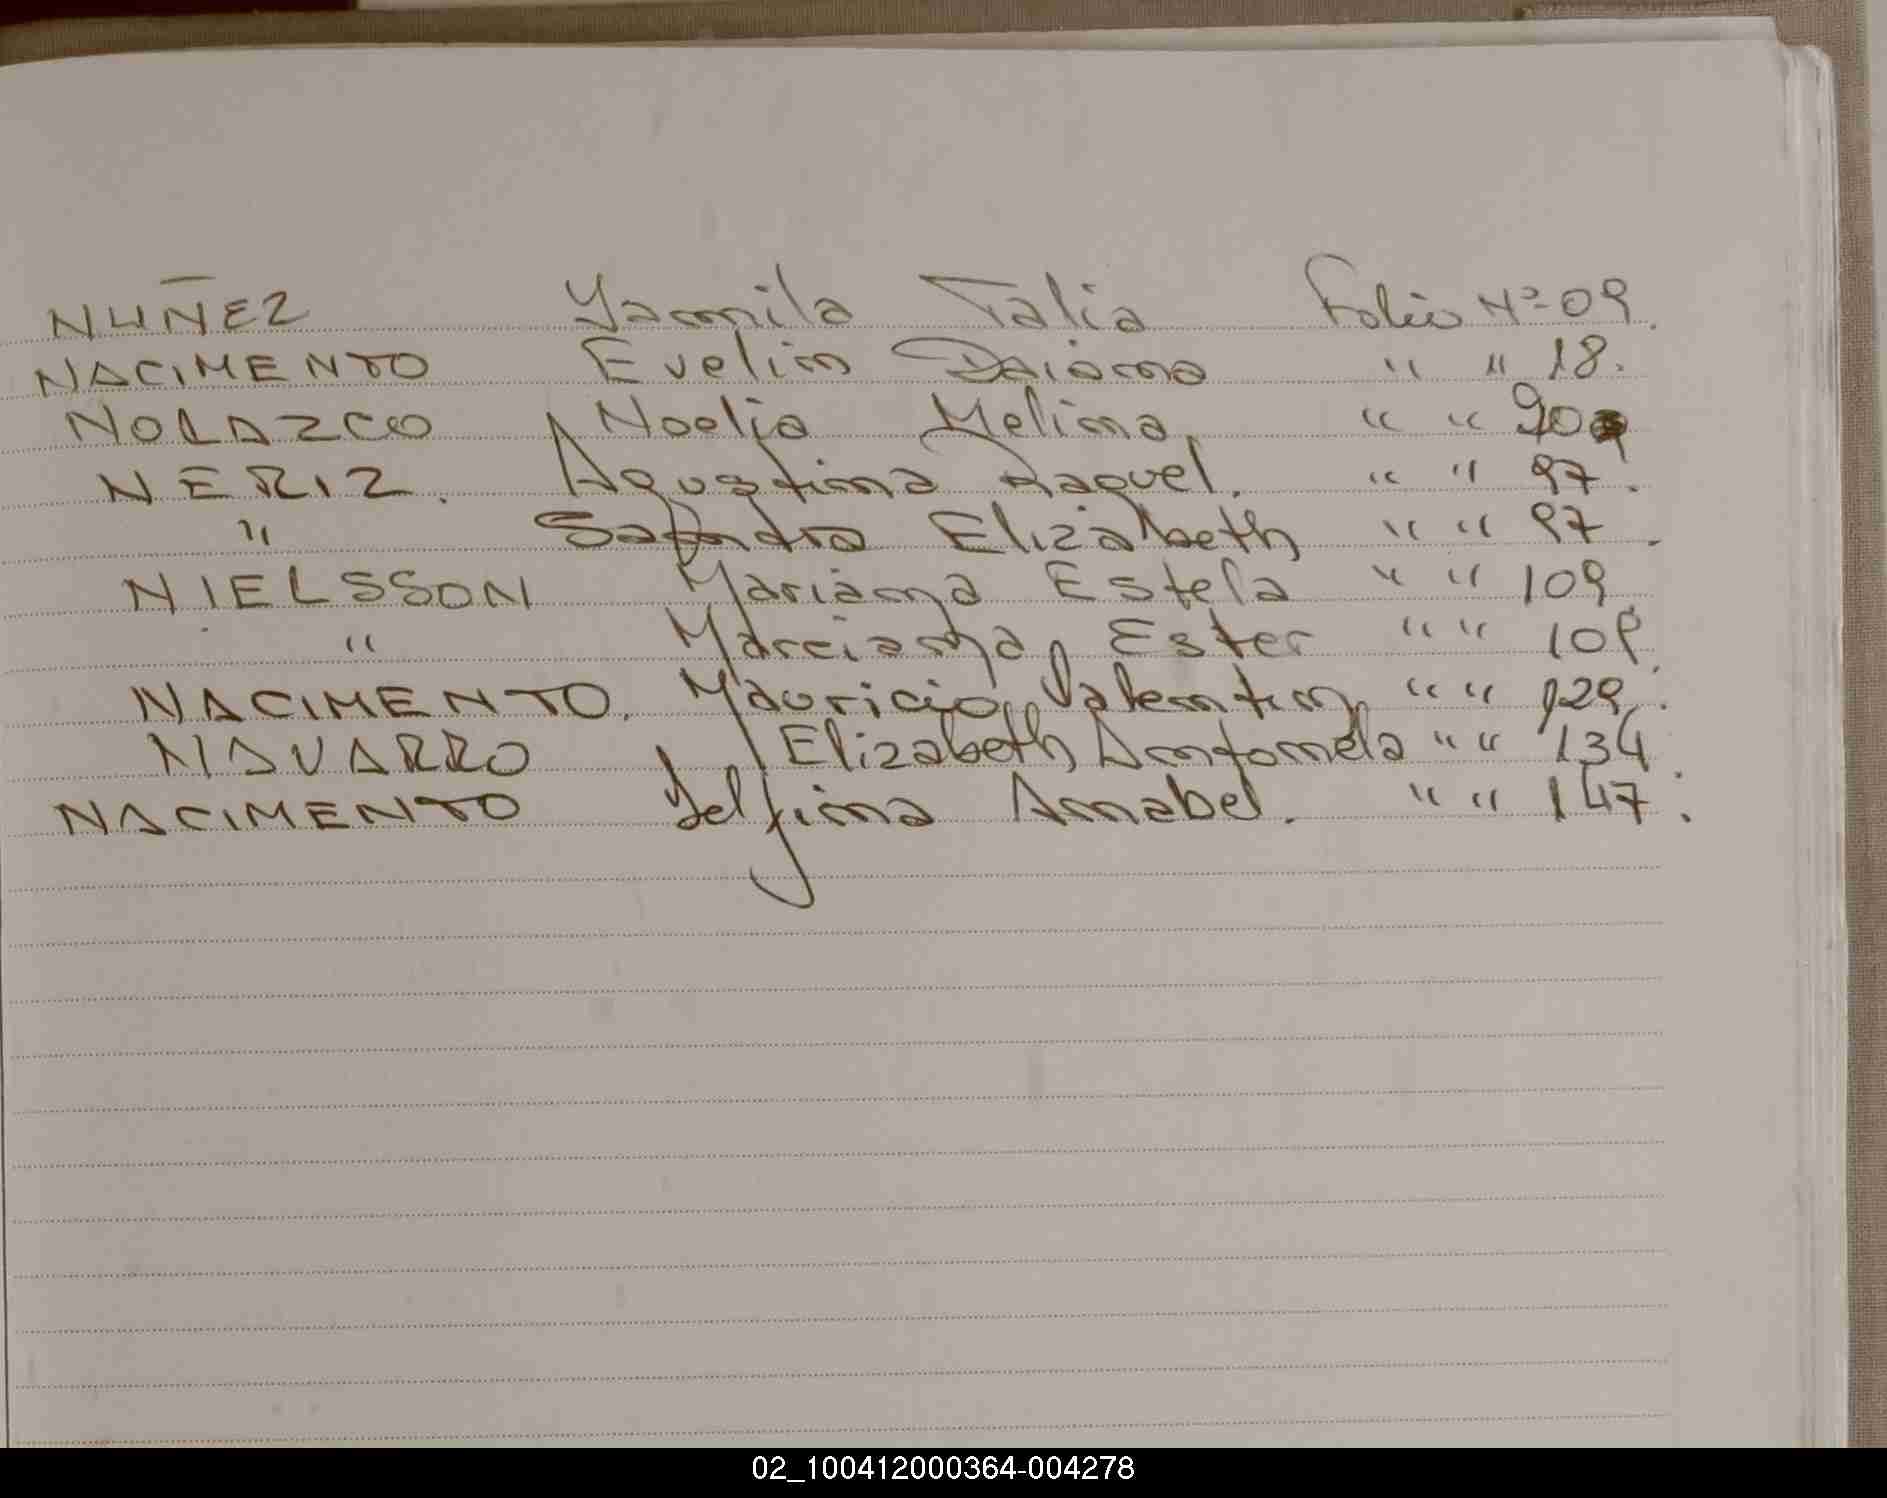 NUÑEZ Yamila Talia Folio Nº 09.
NACIMENTO Evelin Daiana " " 18.
NOLAZCO Noelia Melina " " 90
NERIZ. Agustina Raquel. " " 97.
" Sandra Elizabeth " " 97.
NIELSSON Mariana Estela " " 109.
" Marciana Ester " " 109.
NACIMENTO. Mauricio Valentin " " 129.
NAVARRO Elizabeth Antonela " " 134.
NACIMENTO Delfina Annabel. " " 147.
02_100412000364-004278